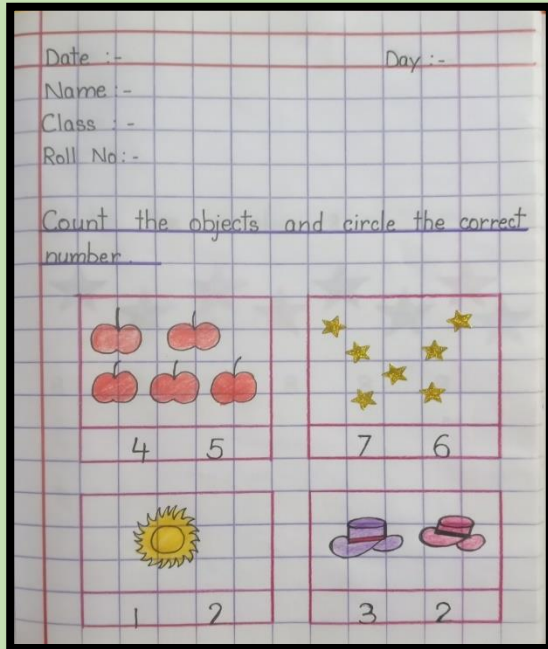 Date :- Day :-
Name :-
Class : -
Roll No:-
Count the objects and circle the correct
number.
4 5
7 6
1 2
3 2